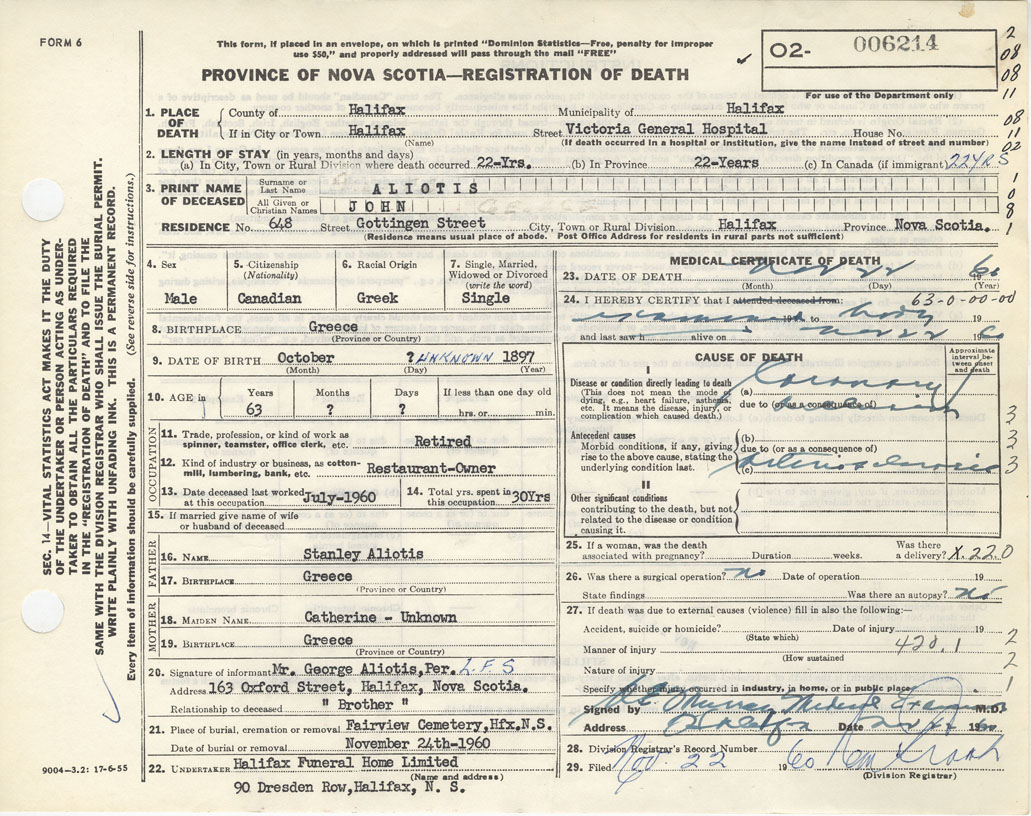 FORM 6
This form, if placed in an envelope, on which is printed "Dominion Statistics—Free, penalty for improper
use $50," and properly addressed will pass through the mail "FREE"
O2- 006214
For use of the Department only
PROVINCE OF NOVA SCOTIA—REGISTRATION OF DEATH
2
08
08
11
08
11
02
1
0
8
1
1. PLACE OF DEATH
County of Halifax Municipality of Halifax
If in City or Town Halifax Street Victoria General Hospital House No.
(Name) (If death occurred in a hospital or institution, give the name instead of street and number)
2. LENGTH OF STAY (in years, months and days)
(a) In City, Town or Rural Division where death occurred 22-Yrs. (b) In Province 22-Years (c) In Canada (if immigrant) 22YRS
3. PRINT NAME OF DECEASED
Surname or Last Name ALIOTIS
All Given or Christian Names JOHN
RESIDENCE No. 648 Street Gottingen Street City, Town or Rural Division Halifax Province Nova Scotia.
(Residence means usual place of abode. Post Office Address for residents in rural parts not sufficient)
4. Sex
Male
5. Citizenship
(Nationality)
Canadian
6. Racial Origin
Greek
7. Single, Married,
Widowed or Divorced
(write the word)
Single
8. BIRTHPLACE Greece
(Province or Country)
9. DATE OF BIRTH October ? UNKNOWN 1897
(Month) (Day) (Year)
10. AGE in
Years Months Days If less than one day old
63 ? ? hrs. or min.
OCCUPATION
11. Trade, profession, or kind of work as
spinner, teamster, office clerk, etc. Retired
12. Kind of industry or business, as cotton-
mill, lumbering, bank, etc. Restaurant-Owner
13. Date deceased last worked
at this occupation July-1960
14. Total yrs. spent in
this occupation 30Yrs
15. If married give name of wife
or husband of deceased
FATHER
16. NAME Stanley Aliotis
17. BIRTHPLACE Greece
(Province or Country)
MOTHER
18. MAIDEN NAME Catherine - Unknown
19. BIRTHPLACE Greece
(Province or Country)
20. Signature of informant Mr. George Aliotis, Per. L.F.S
Address 163 Oxford Street, Halifax, Nova Scotia.
Relationship to deceased " Brother "
21. Place of burial, cremation or removal Fairview Cemetery, Hfx, N.S.
Date of burial or removal November 24th-1960
22. UNDERTAKER Halifax Funeral Home Limited
(Name and address)
90 Dresden Row, Halifax, N. S.
MEDICAL CERTIFICATE OF DEATH
23. DATE OF DEATH Nov 22 60
(Month) (Day) (Year)
24. I HEREBY CERTIFY that I attended deceased from: 63-0-00-00
examined 19 to body 19
and last saw h alive on Nov 22 1960
CAUSE OF DEATH
Approximate interval between onset and death
I
Disease or condition directly leading to death
(This does not mean the mode of
dying, e.g., heart failure, asthenia,
etc. It means the disease, injury, or
complication which caused death.)
(a) Coronary
due to (or as a consequence of)
Antecedent causes
Morbid conditions, if any, giving
rise to the above cause, stating the
underlying condition last.
(b)
due to (or as a consequence of)
(c) arteriosclerosis
II
Other significant conditions
contributing to the death, but not
related to the disease or condition
causing it.
3
3
3
3
25. If a woman, was the death
associated with pregnancy? Duration weeks. Was there
a delivery? X.220
26. Was there a surgical operation? no Date of operation 19
State findings Was there an autopsy? no
27. If death was due to external causes (violence) fill in also the following:—
Accident, suicide or homicide? Date of injury 19
(State which)
Manner of injury 420.1
(How sustained
Nature of injury
Specify whether injury occurred in industry, in home, or in public place
2
2
1
Signed by Murray Medical Examiner M.D.
Address Halifax Date Nov 1960
28. Division Registrar's Record Number
29. Filed Nov. 22 1960
(Division Registrar)
SEC. 14—VITAL STATISTICS ACT MAKES IT THE DUTY
OF THE UNDERTAKER OR PERSON ACTING AS UNDER-
TAKER TO OBTAIN ALL THE PARTICULARS REQUIRED
IN THE "REGISTRATION OF DEATH" AND TO FILE THE
SAME WITH THE DIVISION REGISTRAR WHO SHALL ISSUE THE BURIAL PERMIT.
WRITE PLAINLY WITH UNFADING INK. THIS IS A PERMANENT RECORD.
Every item of information should be carefully supplied. (See reverse side for instructions.)
9004—3.2: 17-6-55